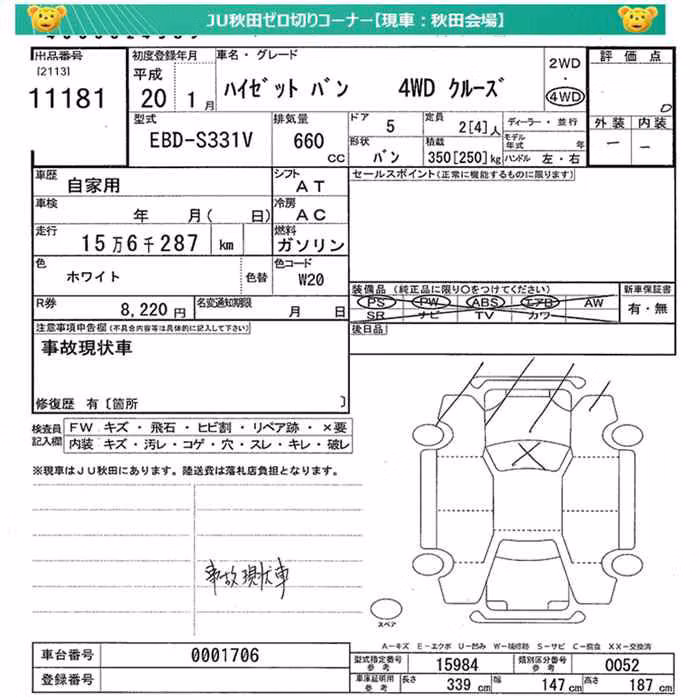 JU秋田ゼロ切りコーナー【現車：秋田会場】
出品番号
[2113]
11181
初度登録年月
平成
20 1月
車名・グレード
ハイゼット バン 4WD クルーズ
2WD
・
4WD
評価点
0
外装 内装
ー ー
型式
EBD-S331V
排気量
660
CC
ドア 5
定員 2[4]人
形状 バン
積載 350[250]kg
ディーラー・並行
モデル年式 年
ハンドル 左・右
車歴
自家用
シフト
AT
車検
年 月( 日)
冷房
AC
走行
15万6千287 km
燃料
ガソリン
色
ホワイト
色替
色コード
W20
R券
8,220円
名変通知期限
月 日
セールスポイント(正常に機能するものに限ります)
装備品 (純正品に限り○をつけてください)
PS PW ABS エアB AW
SR ナビ TV カワ
新車保証書
有・無
後日品
注意事項申告欄(不具合内容等は具体的に記入して下さい)
事故現状車
修復歴 有〔箇所 〕
検査員記入欄
FW キズ・飛石・ヒビ割・リペア跡・×要
内装 キズ・汚レ・コゲ・穴・スレ・キレ・破レ
※現車はJU秋田にあります。陸送費は落札店負担となります。
事故現状車
スペア
A－キズ E－エクボ U－凹み W－補修跡 S－サビ C－腐食 XX－交換済
車台番号
0001706
登録番号
型式指定番号
参考
15984
類別区分番号
参考
0052
車庫証明用
参考
長さ 339 cm
幅 147 cm
高さ 187 cm